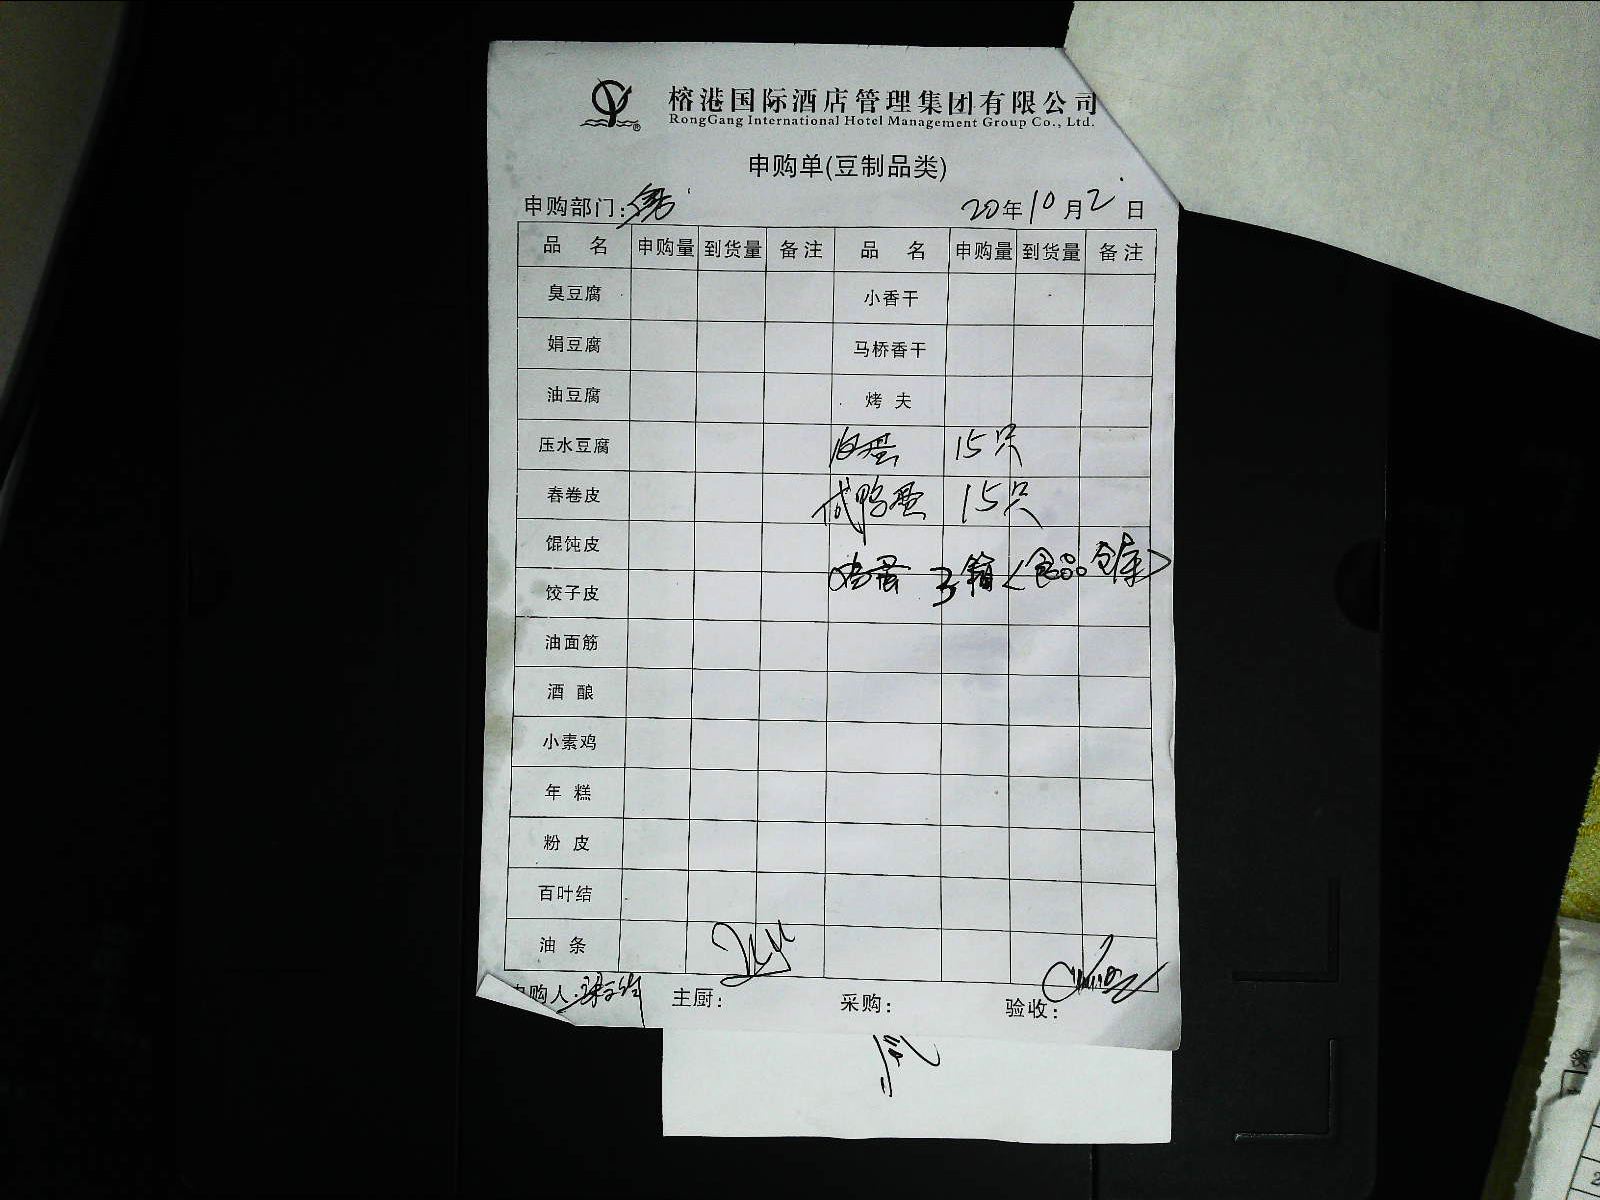 榕港国际酒店管理集团有限公司
RongGang International Hotel Management Group Co., Ltd.
申购单(豆制品类)
申购部门: 20年10月2日
品 名 申购量 到货量 备注 品 名 申购量 到货量 备注
臭豆腐 小香干
娟豆腐 马桥香干
油豆腐 烤 夫
压水豆腐 15只
春卷皮 咸鸭蛋 15只
馄饨皮 鸡蛋 3箱<食品仓库>
饺子皮
油面筋
酒 酿
小素鸡
年 糕
粉 皮
百叶结
油 条
申购人: 主厨: 采购: 验收: